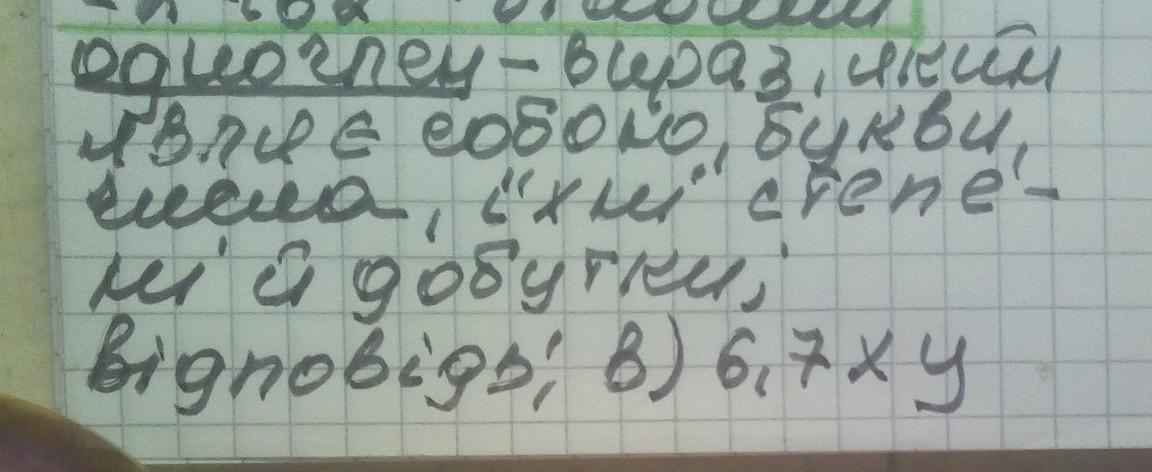 одночлен - вираз, який
являє собою, букви,
числа, їхні степе-
ні й добутки;
відповідь; в) 6,7ху